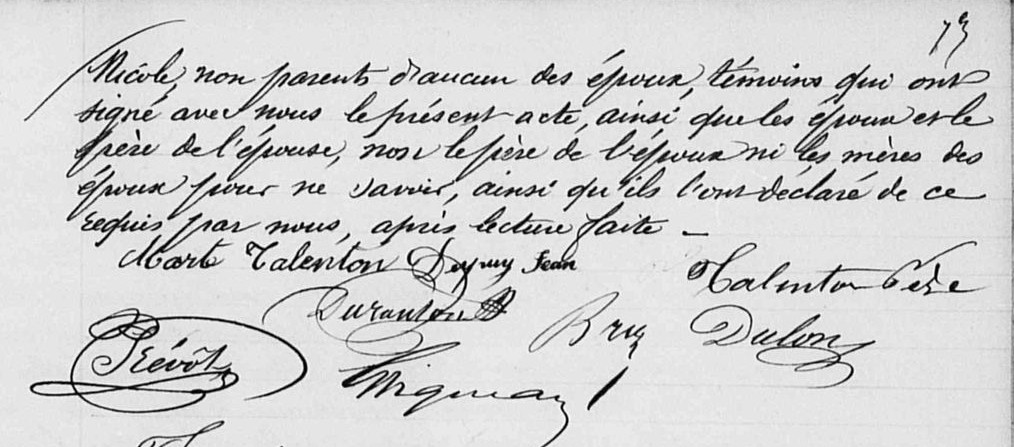 73
Nicole, non parents d'aucun des époux, témoins qui ont
signé avec nous le présent acte, ainsi que les époux et le
père de l'épouse, non le père de l'époux ni les mères des
époux pour ne savoir, ainsi qu'ils l'ont déclaré de ce
requis par nous, après lecture faite _
Marte Talenton Dupuy Jean
Talenton Père
Duranton
Dulon
Prévôt